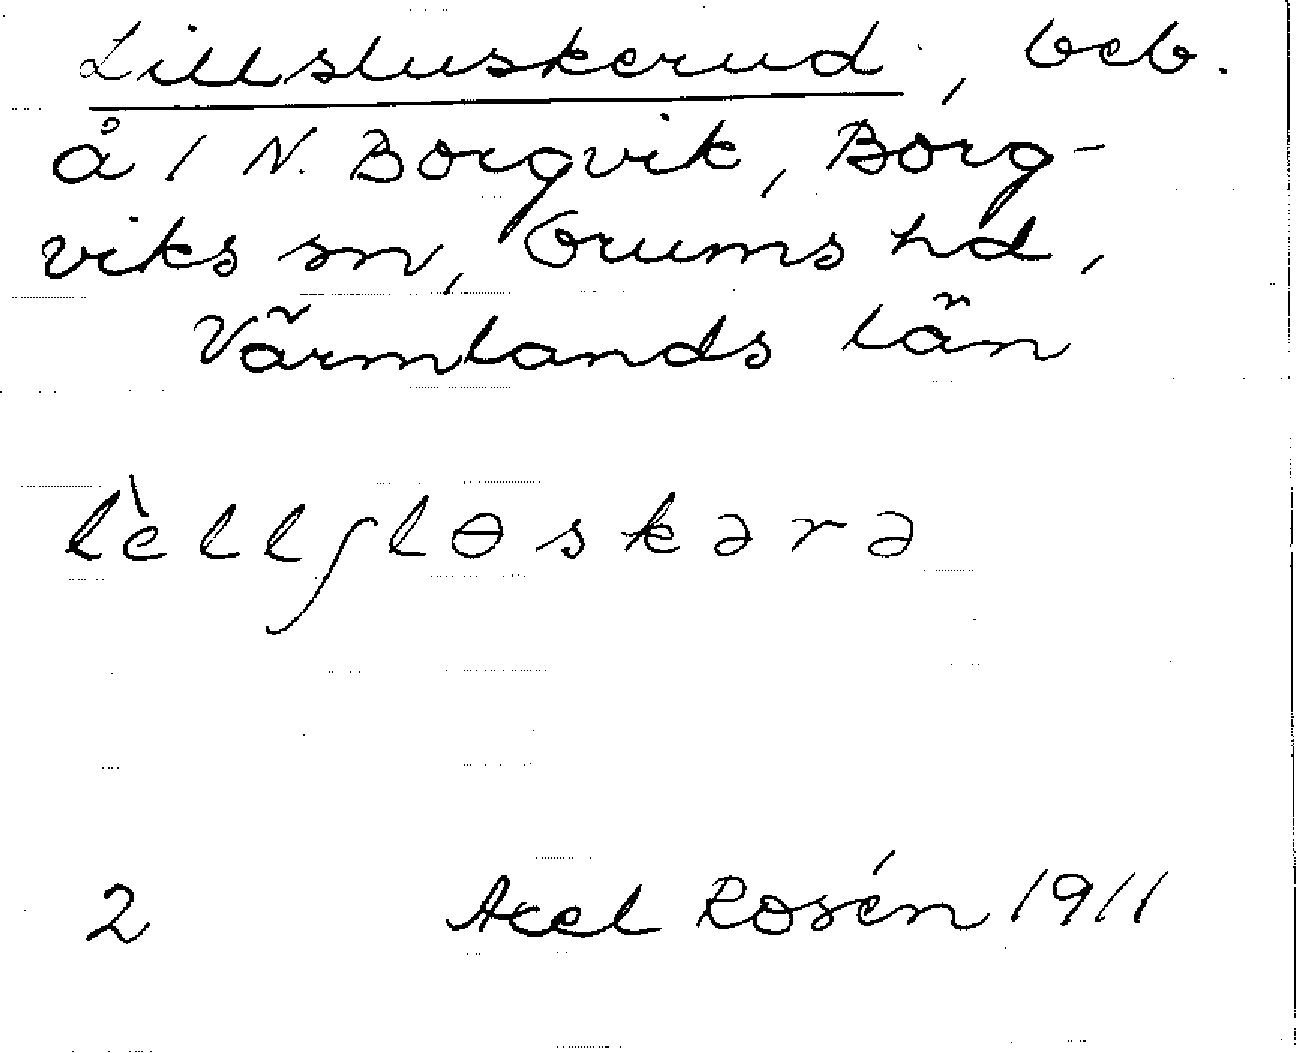 Lillsluskerud, beb.
å 1 N. Borgvik, Borg-
viks sn, Grums hd,
Värmlands län
lèllʃlɵskərə
2 Axel Rosén 1911